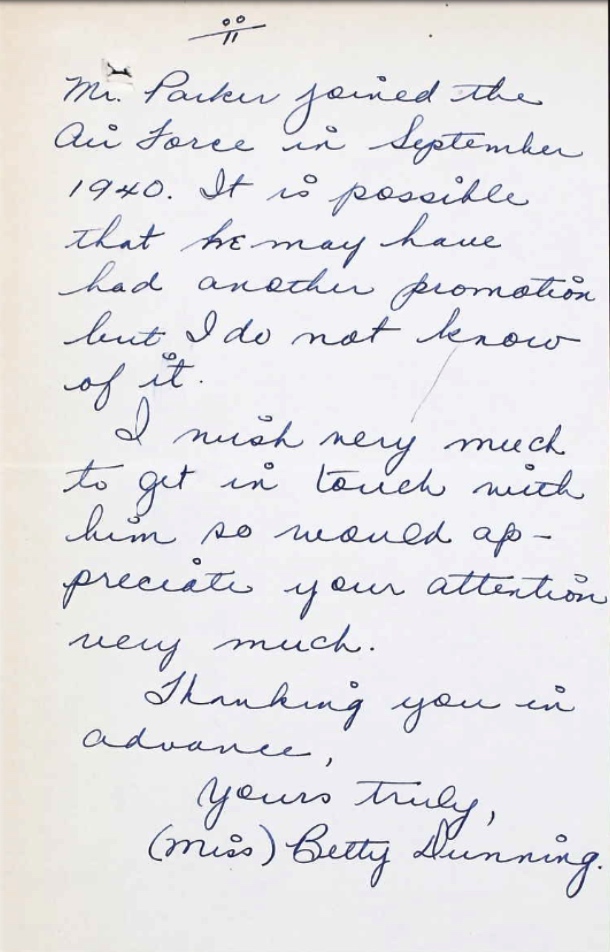 ii
Mr. Parker joined the
Air Force in September
1940. It is possible
that he may have
had another promotion
but I do not know
of it.
I wish very much
to get in touch with
him so would ap-
preciate your attention
very much.
Thanking you in
advance,
Yours truly,
(Miss) Betty Dunning.